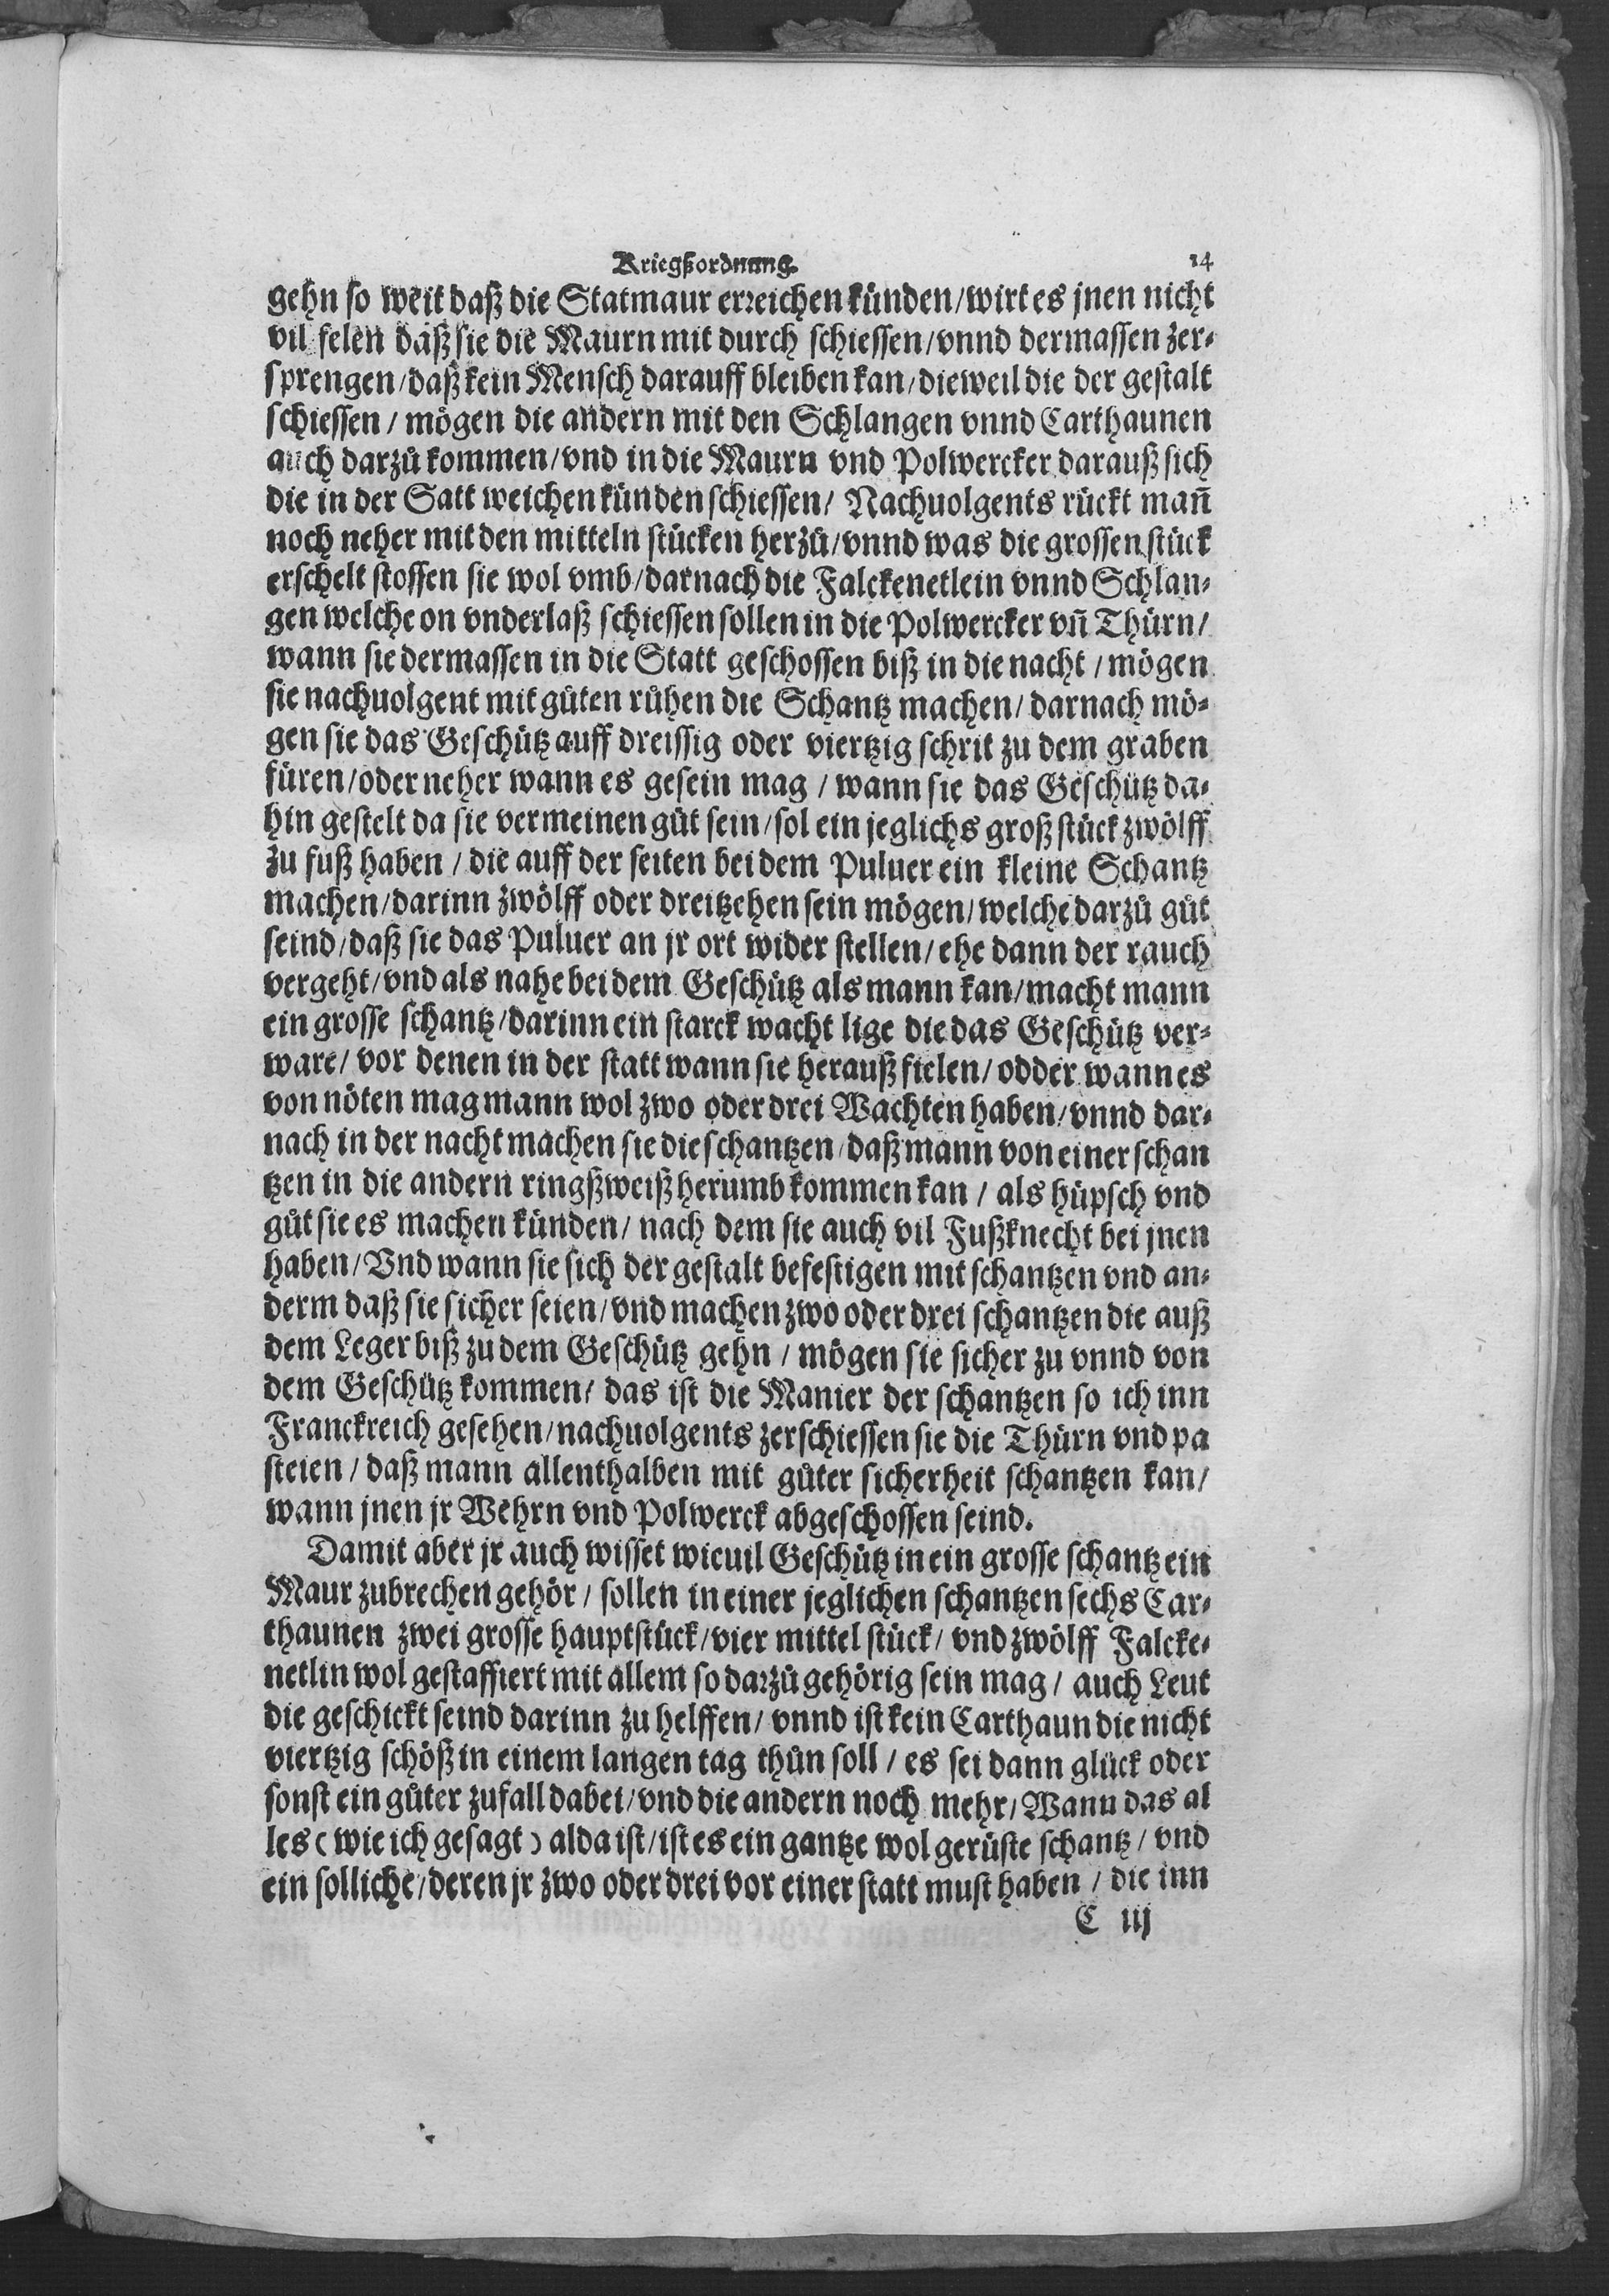 Kriegßordnung. 14
gehn so weit daß die Statmaur erreichen künden/wirt es jnen nicht
vil felen daß sie die Maurn mit durch schiessen/vnnd dermassen zer-
sprengen/daß kein Mensch darauff bleiben kan/dieweil die der gestalt
schiessen/ mögen die andern mit den Schlangen vnnd Carthaunen
auch darzů kommen/vnd in die Maurn vnd Polwercker darauß sich
die in der Satt weichen künden schiessen/ Nachuolgents rückt man̄
noch neher mit den mitteln stücken herzů/vnnd was die grossen stück
erschelt stossen sie wol vmb/darnach die Falckenetlein vnnd Schlan-
gen welche on vnderlaß schiessen sollen in die Polwercker vn̄ Thürn/
wann sie dermassen in die Statt geschossen biß in die nacht/mögen
sie nachuolgent mit gůten růhen die Schantz machen/darnach mö-
gen sie das Geschütz auff dreissig oder viertzig schrit zu dem graben
füren/oder neher wann es gesein mag / wann sie das Geschütz da-
hin gestelt da sie vermeinen gůt sein/sol ein jeglichs groß stück zwölff
zu fuß haben / die auff der seiten bei dem Puluer ein kleine Schantz
machen/darinn zwölff oder dreitzehen sein mögen/welche darzů gůt
seind/daß sie das Puluer an jr ort wider stellen/ehe dann der rauch
vergeht/vnd als nahe bei dem Geschütz als mann kan/macht mann
ein grosse schantz/darinn ein starck wacht lige die das Geschütz ver-
ware/ vor denen in der statt wann sie herauß fielen/odder wann es
von nöten mag mann wol zwo oder drei Wachten haben/vnnd dar-
nach in der nacht machen sie die schantzen/daß mann von einer schan
tzen in die andern ringßweiß herumb kommen kan / als hüpsch vnd
gůt sie es machen künden/ nach dem sie auch vil Fußknecht bei jnen
haben/Vnd wann sie sich der gestalt befestigen mit schantzen vnd an-
derm daß sie sicher seien/vnd machen zwo oder drei schantzen die auß
dem Leger biß zu dem Geschütz gehn / mögen sie sicher zu vnnd von
dem Geschütz kommen/ das ist die Manier der schantzen so ich inn
Franckreich gesehen/nachuolgents zerschiessen sie die Thürn vnd pa
steien/daß mann allenthalben mit gůter sicherheit schantzen kan/
wann jnen jr Wehrn vnd Polwerck abgeschossen seind.
Damit aber jr auch wisset wieuil Geschütz in ein grosse schantz ein
Maur zubrechen gehör / sollen in einer jeglichen schantzen sechs Car-
thaunen zwei grosse hauptstück/vier mittel stück/ vnd zwölff Falcke-
netlin wol gestaffiert mit allem so darzů gehörig sein mag/ auch Leut
die geschickt seind darinn zu helffen/ vnnd ist kein Carthaun die nicht
viertzig schöß in einem langen tag thůn soll / es sei dann glück oder
sonst ein gůter zufall dabei/vnd die andern noch mehr/Wann das al
les (wie ich gesagt) alda ist/ist es ein gantze wol gerüste schantz/ vnd
ein solliche/deren jr zwo oder drei vor einer statt must haben / die inn
C iij